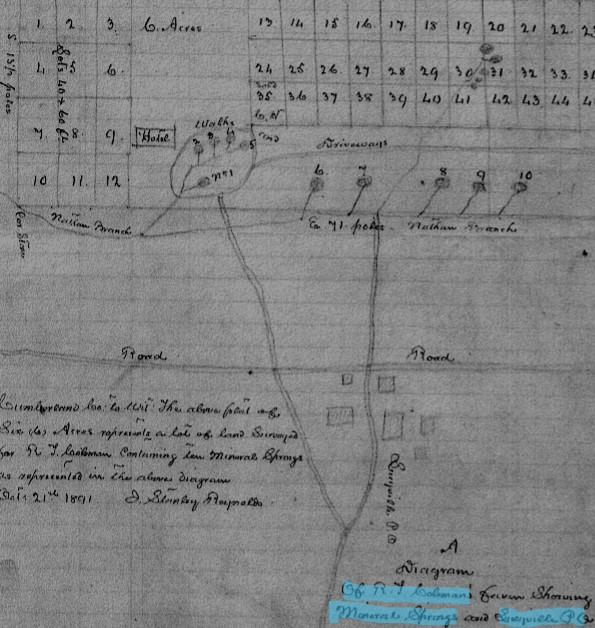 1. 2. 3. 6. Acres 13 14 15 16. 17. 18 19. 20 21 22. 23
S 13½ poles
Lots 40 x 60 ft
4 5 6. 24 25 26. 27 28 29 30 31 32 33. 3
35 36 37 38 39 40 41 42 43 44 4
7 8 9. Hotel Walks
2 3 4 5 Driveways
No 1 6 7 8 9 10
10 11. 12
Nathan Branch E 71 poles Nathan Branch
Road Road
Cumberland Co. to Wit The above plat of
Six (6) Acres represents a lot of land Surveyed
for R J Coleman Containing ten Mineral Springs
as represented in the above diagram
21st 1891 J. Stanley Reynolds.
P.O
A
Diagram
Of R J Coleman farm Showing
Mineral Springs and P.O